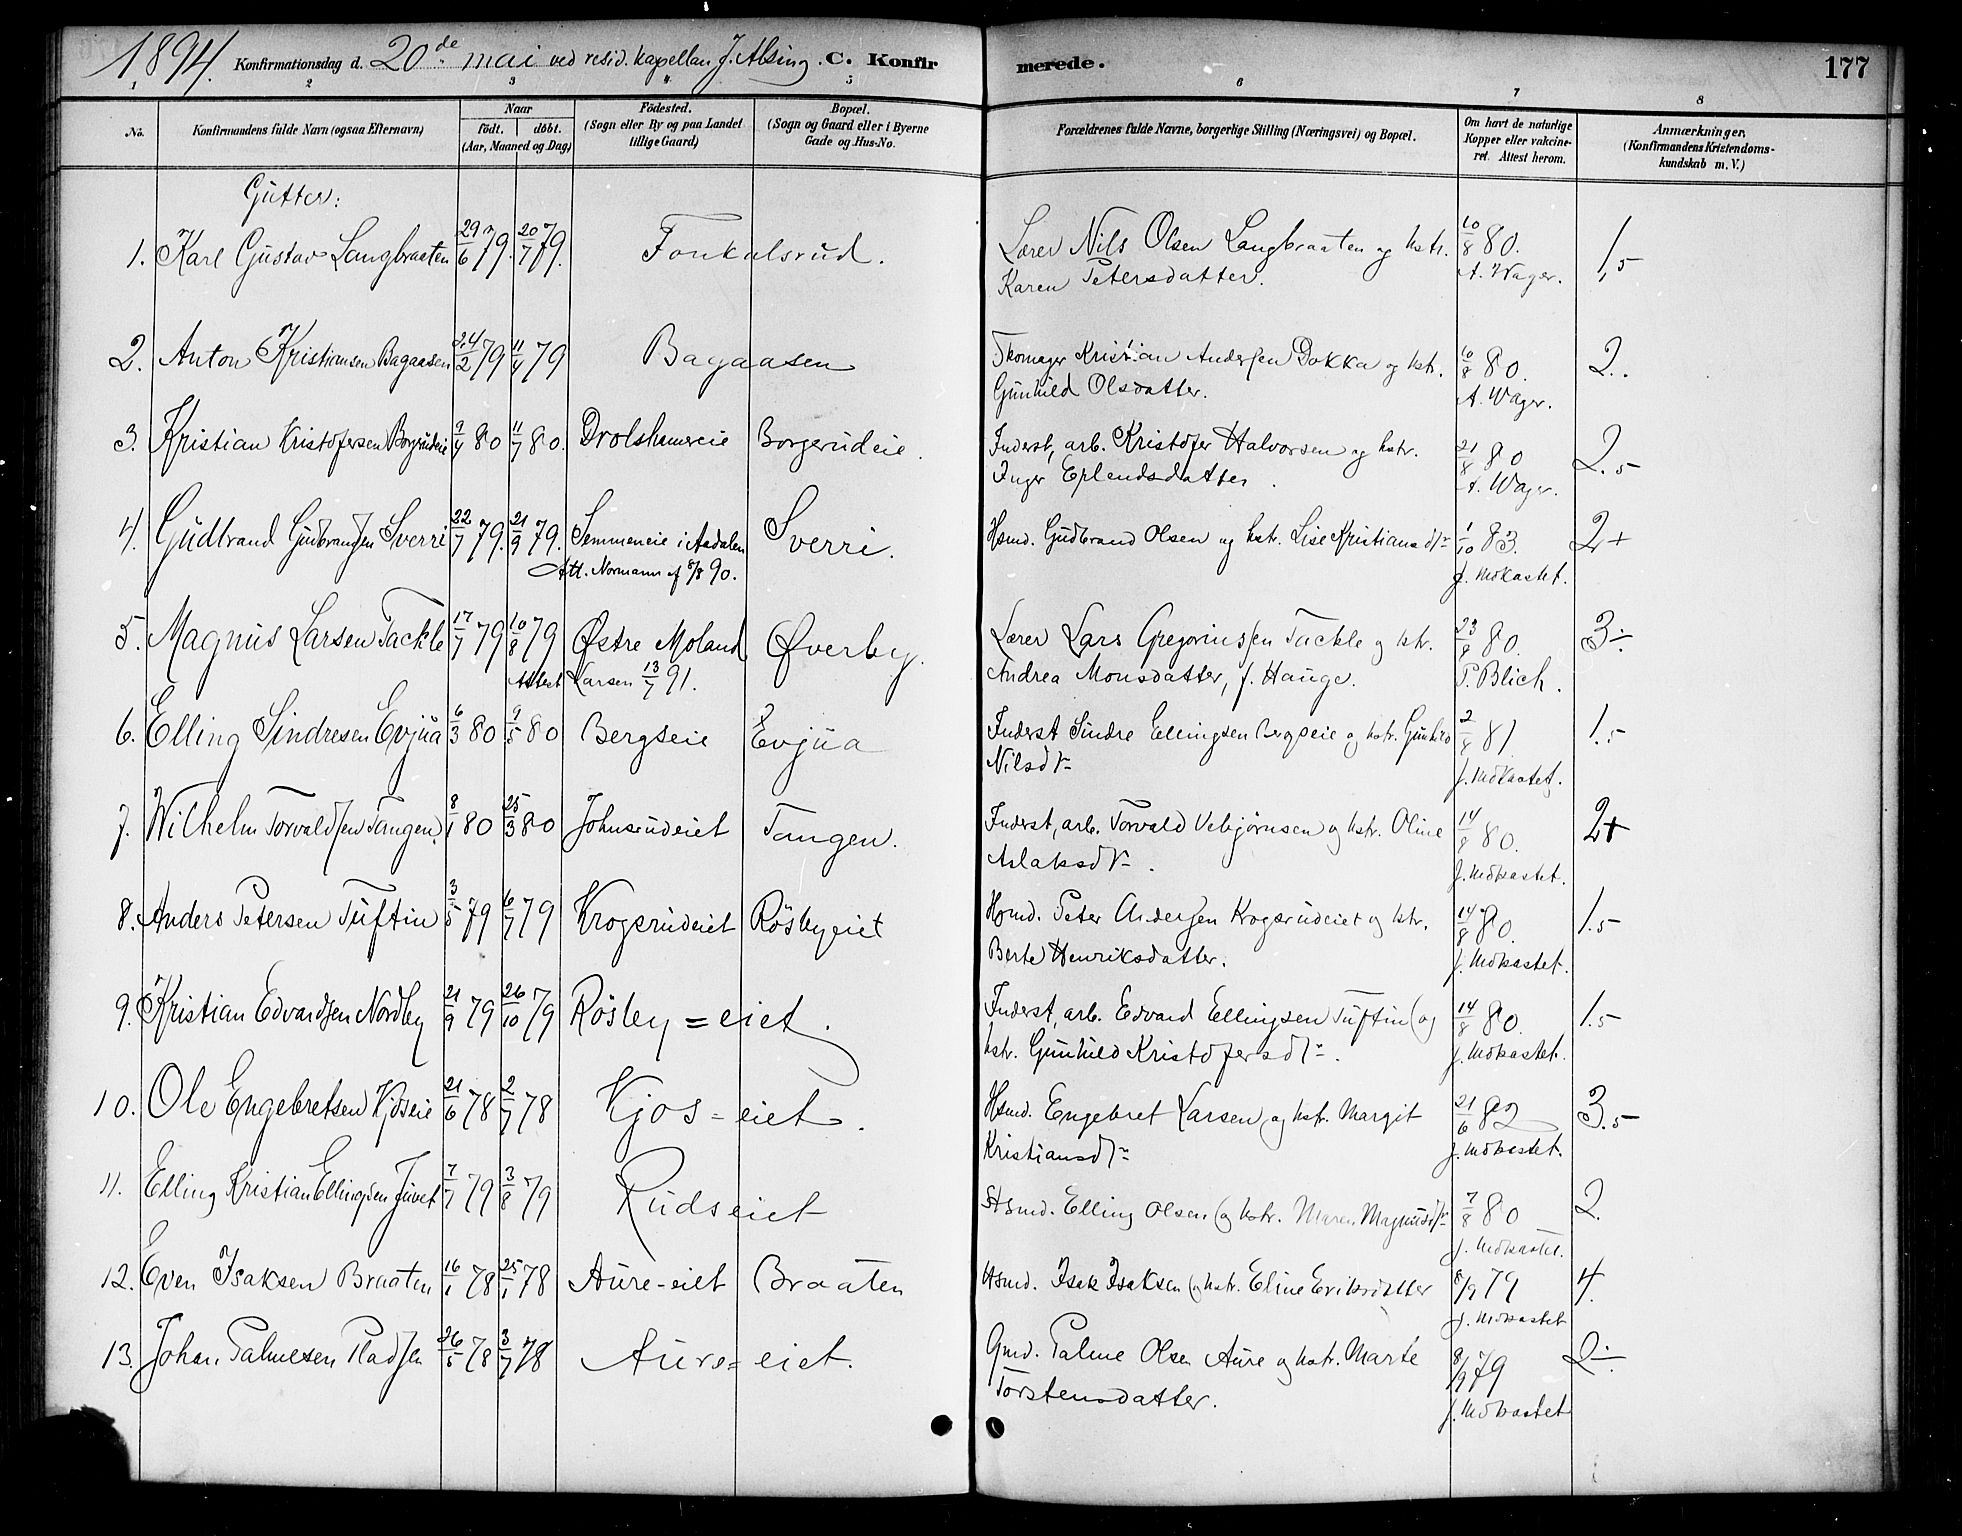 1894. Konfirmationsdag d. 20de mai ved resid. kapellan J. Alsing. C. Konfirmerede. 177
1 2 3 4 5 6 7 8
No. Konfirmandens fulde Navn (ogsaa Efternavn) Naar født. døbt. (Aar, Maaned og Dag) Fødested. (Sogn eller By og paa Landet tillige Gaard) Bopæl. (Sogn og Gaard eller i Byerne Gade og Hus-No. Forældrenes fulde Navne, borgerlige Stilling (Næringsvei) og Bopæl. Om havt de naturlige Kopper eller vakcineret. Attest herom. Anmærkninger. (Konfirmandens Kristendomskundskab m. V.)
Gutter:
1. Karl Gustav Langbraaten 29/6 79. 20/7 79. Fonkalsrud. Lærer Nils Olsen Langbraaten og hstr. 10/8 80. 1,5
Karen Petersdatter. A. Wager.
2. Anton Kristiansen Bagaasen 24/2 79 11/4 79 Bagaasen Skomager Kristian Andersen Dokka og hstr. 10/8 80. 2.
Gunhild Olsdatter. A. Wager.
3. Kristian Kristofersen Borgerudeie 9/4 80 11/7 80. Drolshamereie Borgerudeie. Inderst, arb. Kristofer Halvorsen og hstr. 21/8 80 2.5
Inger Erlendsdatter. A. Wager.
4. Gudbrand Gudbrandsen Sverri 22/7 79. 21/9 79. Semmeneie i Aadalen Sverri. Hsmd. Gudbrand Olsen og hstr. Lise Kristiansdtr 1/10 83. 2+
Att. Normann af 8/8 90. J. Mokastet.
5. Magnus Larsen Tackle 17/7 79 10/8 79 Østre Moland Øverby. Lærer Lars Gregoriussen Tackle og hstr. 23/9 80. 3÷
Attest Larsen 13/7 91. Andrea Monsdatter, f. Hauge. P. Blich.
6. Elling Sindresen Evjua 6/3 80 9/5 80 Bergseie Evjua Inderst Sindre Ellingsen Bergseie og hstr. Gunhild 2/8 81 1.5
Nilsdtr J. Mokastet.
7. Wilhelm Torvaldsen Tangen. 8/1 80 25/3 80 Johnsrudeiet Tangen. Inderst, arb. Torvald Vebjørnsen og hstr. Oline 14/8 80. 2+
Aslaksdtr. J. Mokastet.
8. Anders Petersen Tuftin 3/5 79 6/7 79 Krogsrudeiet Røsbyeiet Hsmd. Peter Andersen Krogsrudeiet og hstr. 14/8 80. 1.5
Berte Henriksdatter. J. Mokastet.
9. Kristian Edvardsen Nordby 21/9 79 26/10 79 Røsby=eiet. Inderst, arb. Edvard Ellingsen Tuftin og 14/8 80. 1.5
hstr. Gunhild Kristofersdtr. J. Mokastet.
10. Ole Engebretsen Kjoseie 21/6 78 2/7 78 Kjos-eiet. Hsmd. Engebret Larsen og hstr. Margit 21/6 82 3.5
Kristiansdtr J. Mokastet.
11. Elling Kristian Ellingsen Juvet 7/7 79 3/8 79 Rudseiet Hsmd. Elling Olsen og hstr. Maren Magnusdtr 7/8 80 2.
J. Mokastet.
12. Even Isaksen Braaten 16/1 78 25/1 78 Aure-eiet Braaten Hsmd. Isak Isaksen og hstr. Eline Eriksdatter 8/9 79 4.
J. Mokastet
13. Johan Palmesen Pladsen 26/5 78 3/7 78 Aure=eiet. Gmd. Palme Olsen Aure og hstr. Marte 8/9 79 2÷
Torstensdatter. J. Mokastet